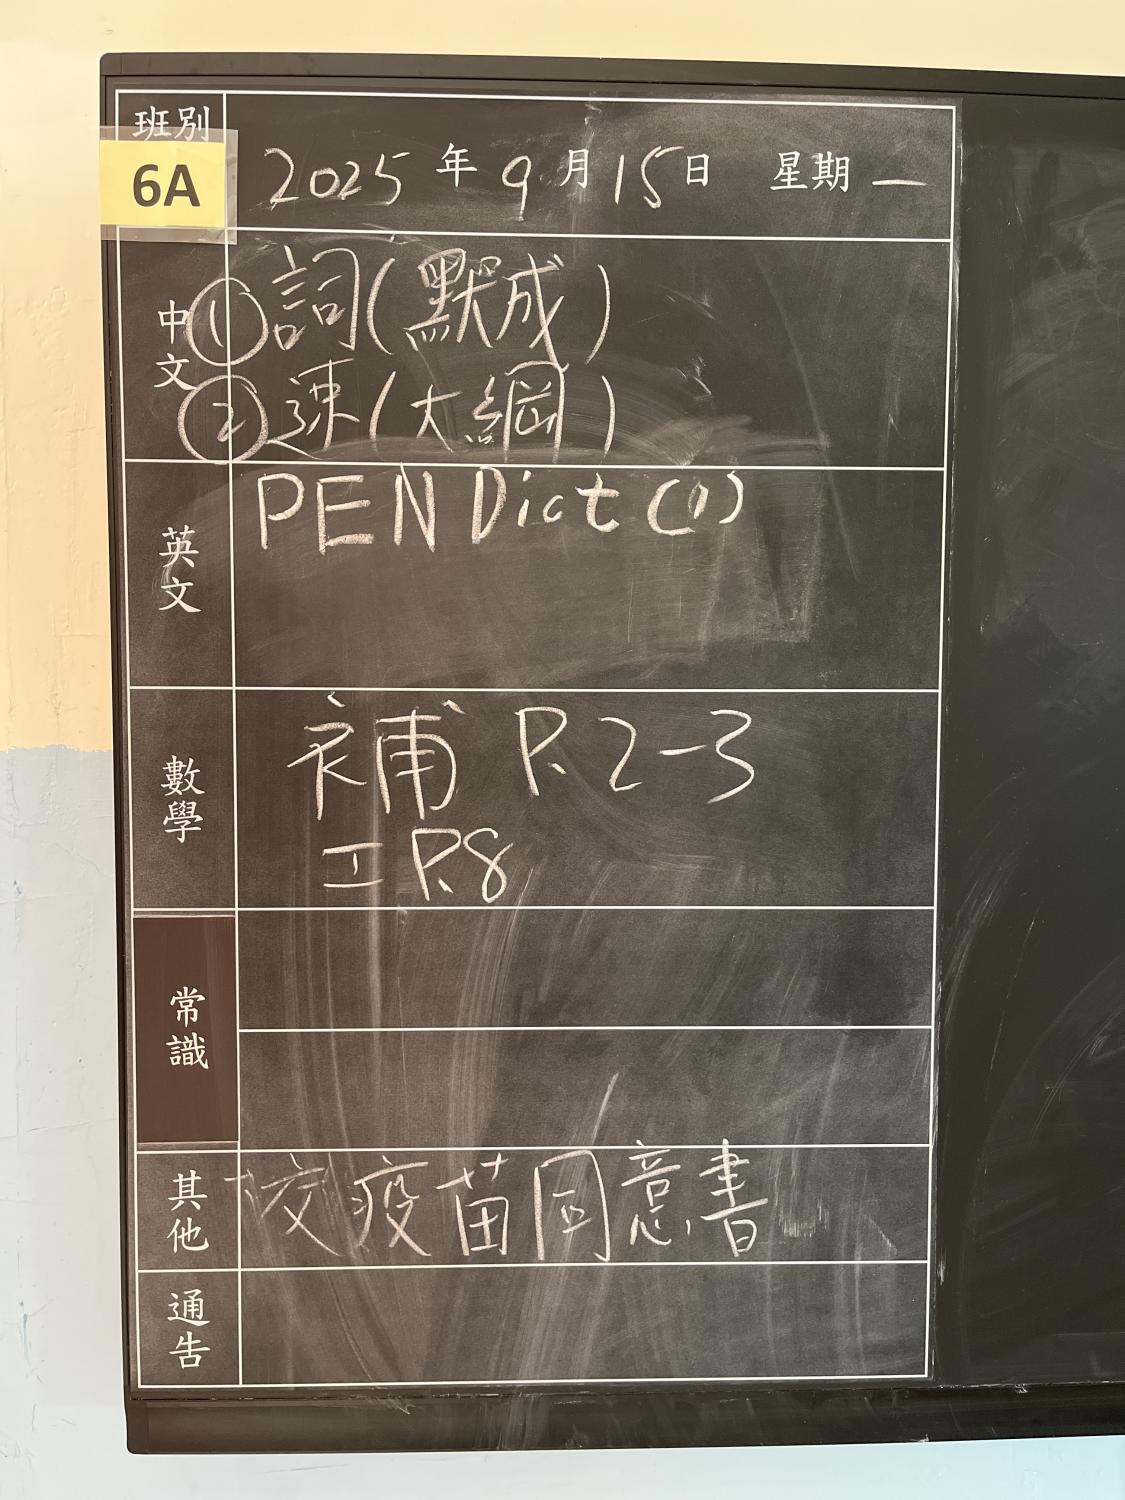 班別
6A
2025年9月15日 星期一
中文
① 詞(默成)
② 速(大綱)
英文
PEN Dict (1)
數學
補 P.2-3
工 P.8
常識
其他
交疫苗同意書
通告